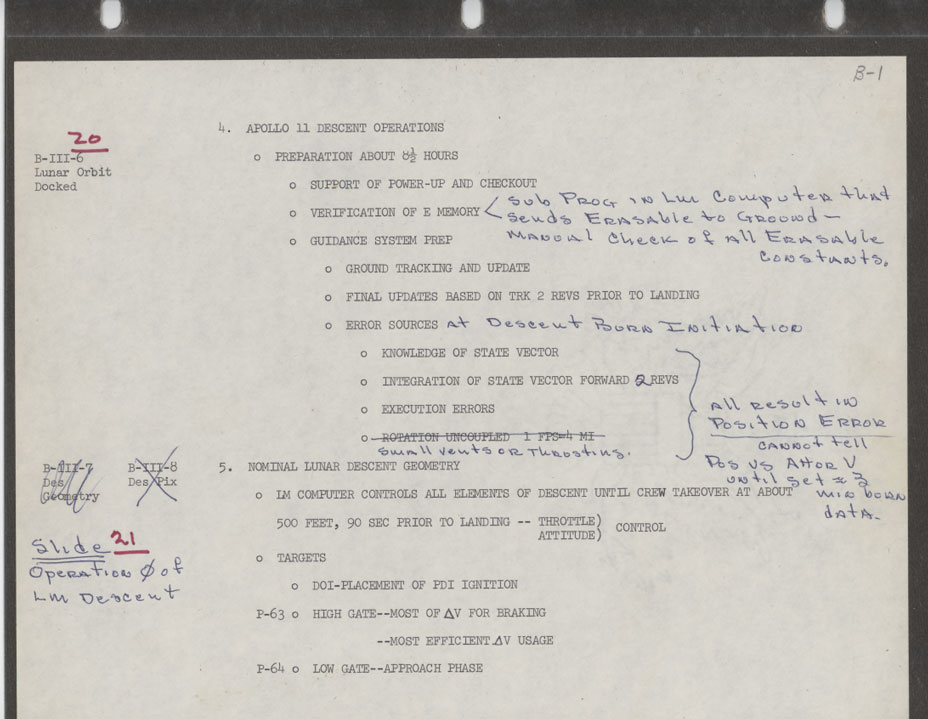 B-1
4. APOLLO 11 DESCENT OPERATIONS
20
B-III-6
Lunar Orbit
Docked
o PREPARATION ABOUT 8½ HOURS
o SUPPORT OF POWER-UP AND CHECKOUT
o VERIFICATION OF E MEMORY < Sub Prog in LM Computer that
Sends Erasable to Ground –
Manual Check of All Erasable
Constants.
o GUIDANCE SYSTEM PREP
o GROUND TRACKING AND UPDATE
o FINAL UPDATES BASED ON TRK 2 REVS PRIOR TO LANDING
o ERROR SOURCES At Descent Burn Initiation
o KNOWLEDGE OF STATE VECTOR
o INTEGRATION OF STATE VECTOR FORWARD 2 REVS
o EXECUTION ERRORS
o ROTATION UNCOUPLED 1 FPS=4 MI
small vents or thrusting.
All result in
Position Error
cannot tell
Pos vs Alt or V
until get ≈ 3
min burn
data.
B-III-7
Des
Geometry
B-III-8
Des Pix
5. NOMINAL LUNAR DESCENT GEOMETRY
o LM COMPUTER CONTROLS ALL ELEMENTS OF DESCENT UNTIL CREW TAKEOVER AT ABOUT
500 FEET, 90 SEC PRIOR TO LANDING -- THROTTLE)
ATTITUDE) CONTROL
Slide 21
Operation Ø of
LM Descent
o TARGETS
o DOI-PLACEMENT OF PDI IGNITION
P-63 o HIGH GATE--MOST OF ΔV FOR BRAKING
--MOST EFFICIENT ΔV USAGE
P-64 o LOW GATE--APPROACH PHASE